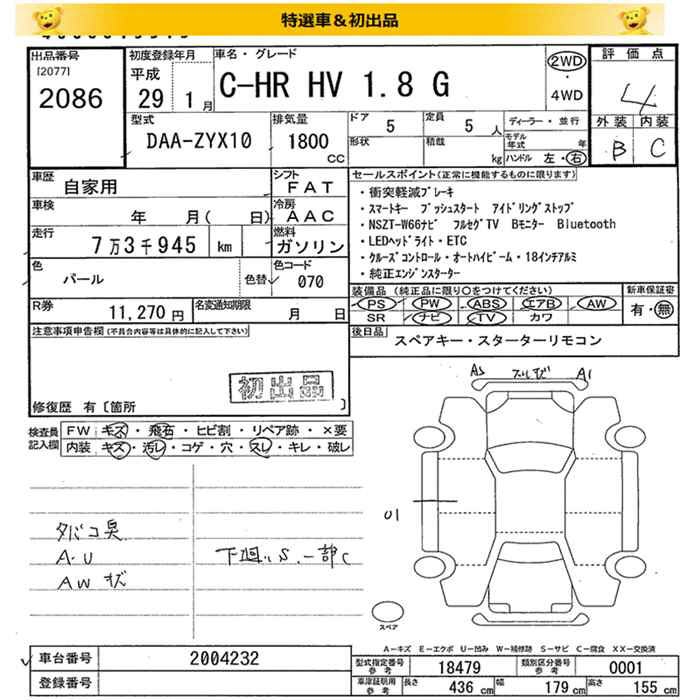 特選車＆初出品
出品番号
[2077]
2086
初度登録年月
平成
29 1月
車名・グレード
C-HR HV 1.8 G
2WD
・
4WD
評価点
4
外装 内装
B C
型式
DAA-ZYX10
排気量
1800
CC
ドア
5
定員
5 人
形状
積載
kg
ディーラー・並行
モデル年式 年
ハンドル 左・右
車歴
自家用
シフト
FAT
車検
年 月( 日)
冷房
AAC
走行
7万3千945 km
燃料
ガソリン
色
パール
色替
色コード
070
R券
11,270円
名変通知期限
月 日
セールスポイント(正常に機能するものに限ります)
・衝突軽減ブレーキ
・スマートキー プッシュスタート アイドリングストップ
・NSZT-W66ナビ フルセグTV Bモニター Bluetooth
・LEDヘッドライト・ETC
・クルーズコントロール・オートハイビーム・18インチアルミ
・純正エンジンスターター
装備品(純正品に限り○をつけてください)
PS PW ABS エアB AW
SR ナビ TV カワ
新車保証書
有・無
後日品
スペアキー・スターターリモコン
注意事項申告欄(不具合内容等は具体的に記入して下さい)
初出品
修復歴 有〔箇所 〕
検査員記入欄
FW キズ・飛石・ヒビ割・リペア跡・×要
内装 キズ・汚レ・コゲ・穴・スレ・キレ・破レ
タバコ臭
A・U
AWキズ
下廻りS、一部C
AS スリキズ A1
U1
スペア
A－キズ E－エクボ U－凹み W－補修跡 S－サビ C－腐食 XX－交換済
車台番号
2004232
登録番号
型式指定番号参考
18479
類別区分番号参考
0001
車庫証明用参考
長さ 436 cm
幅 179 cm
高さ 155 cm